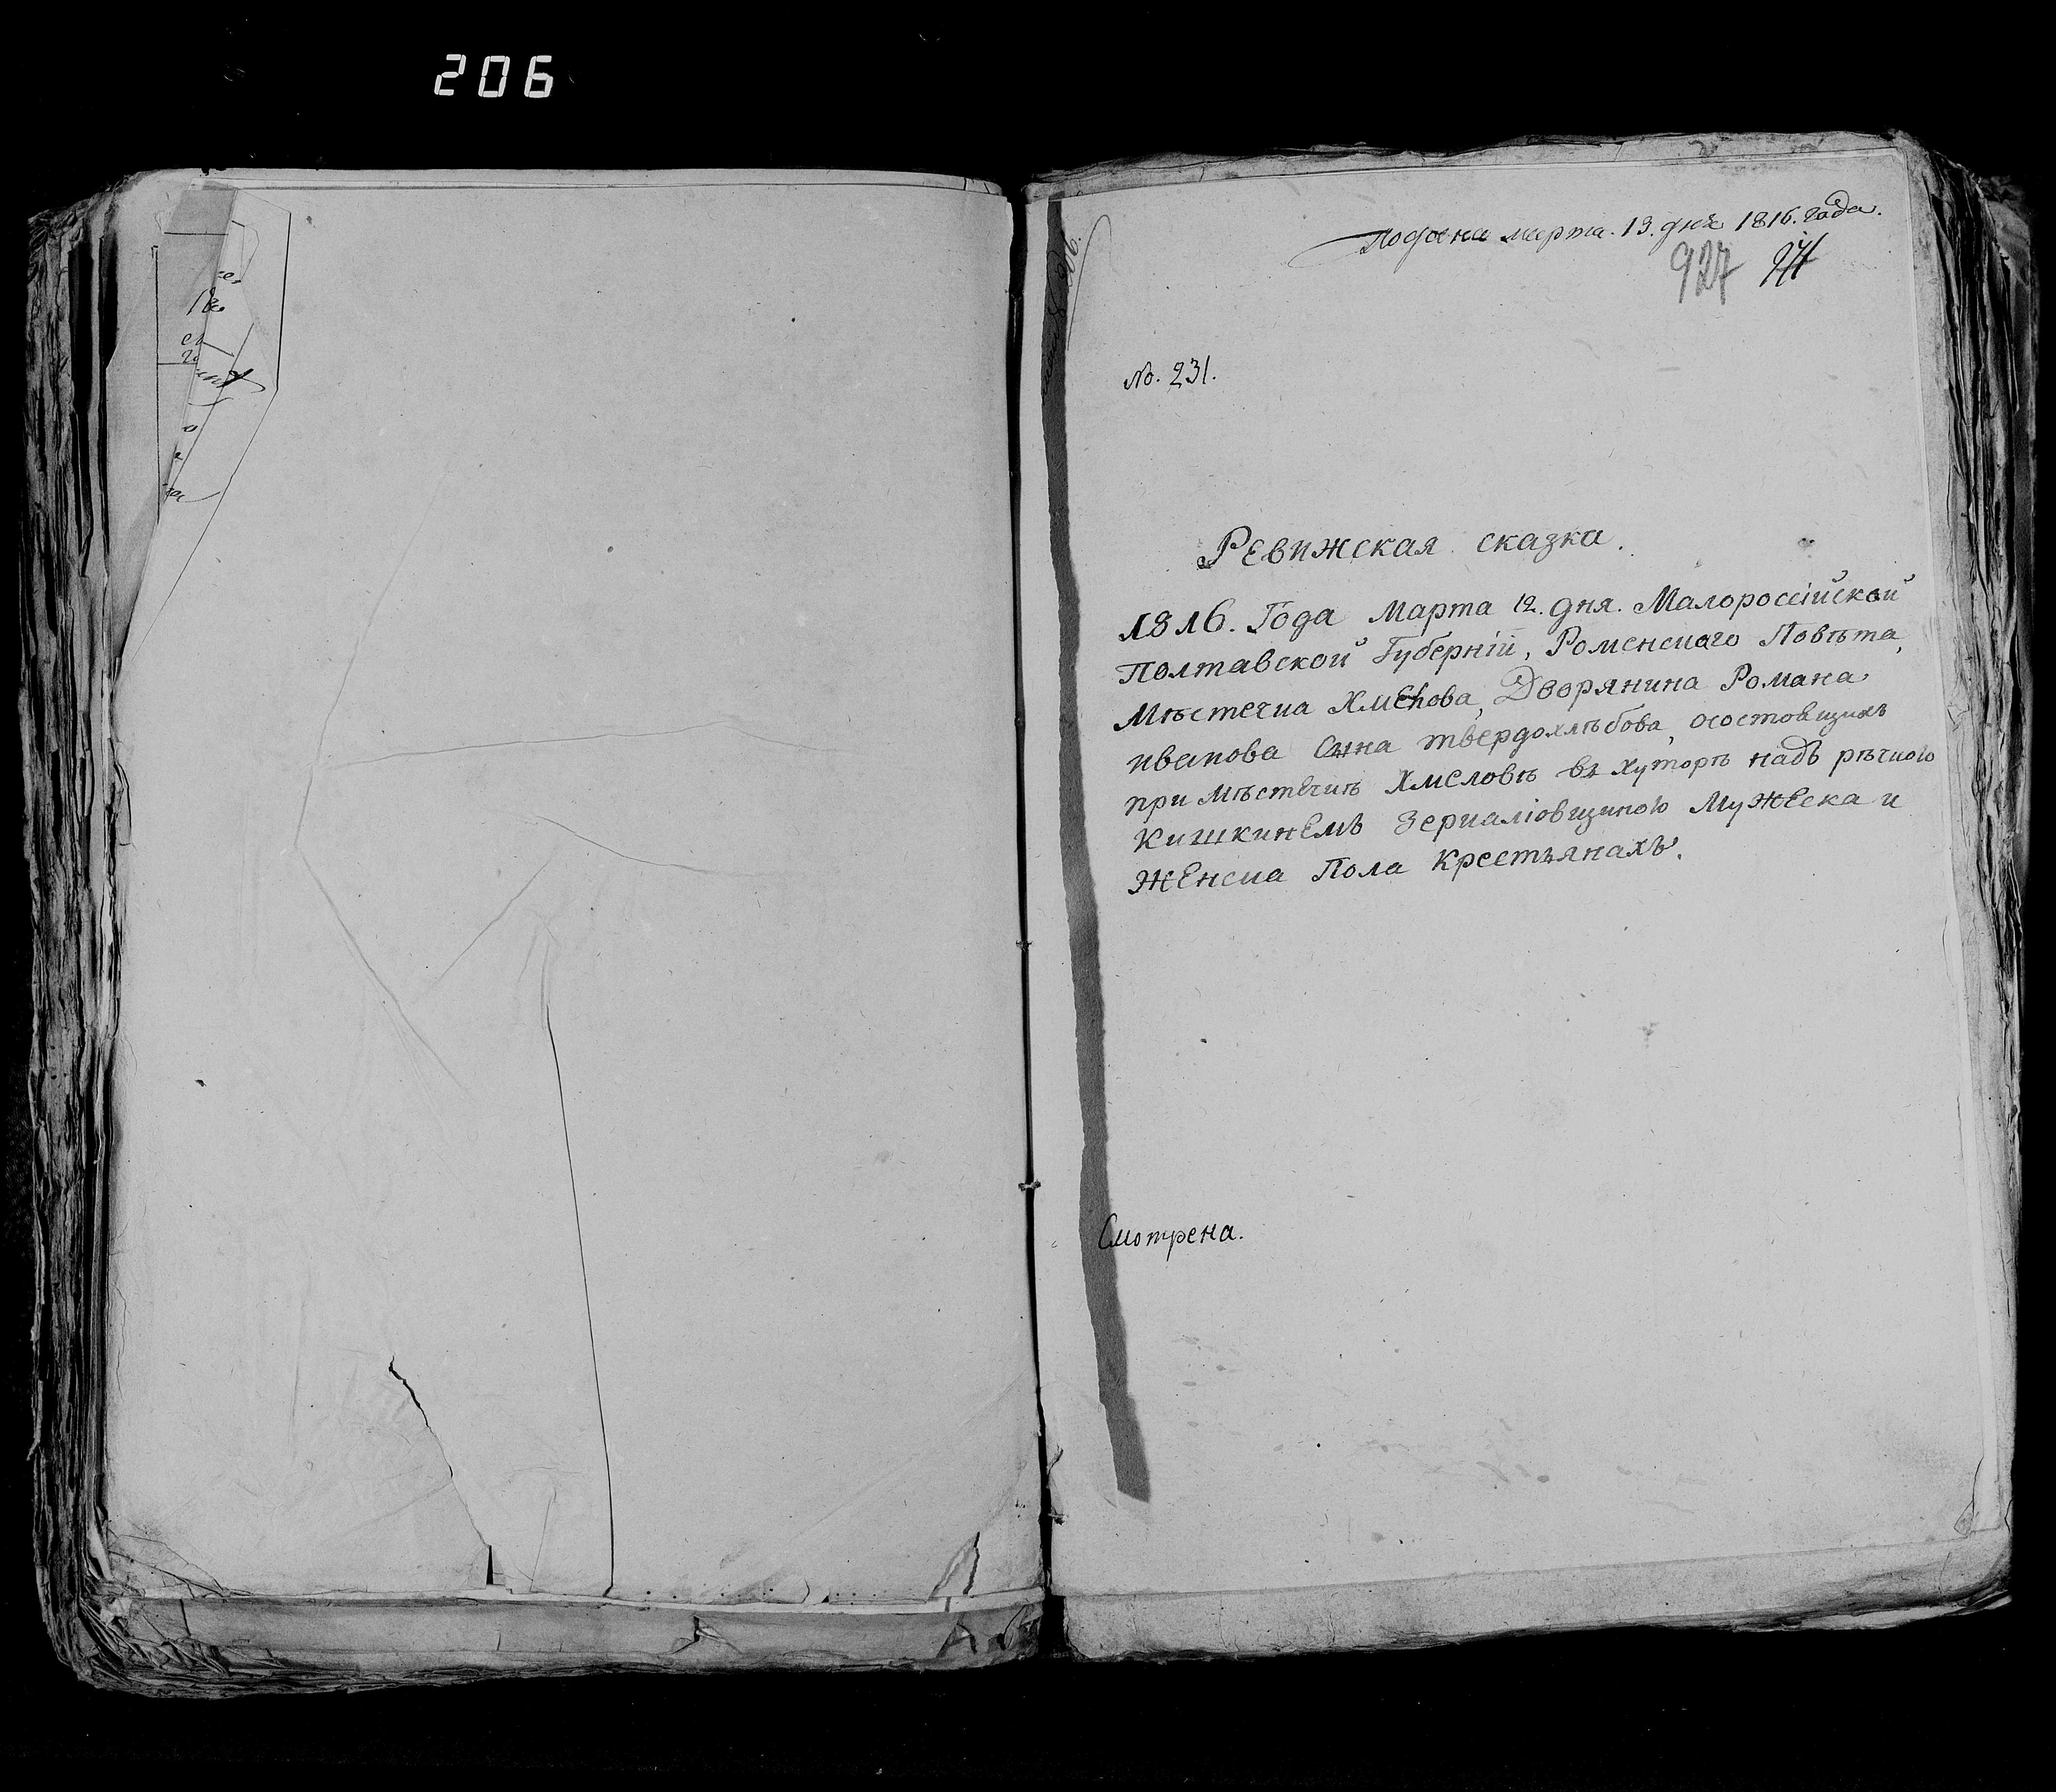 206
Подана марта. 13. дня 1816. года.
927
No. 231.
Ревижская сказка.
1816. Года Марта 12. дня. Малороссійской
Полтавской Губерніи, Роменскаго Повѣта,
Мѣстечка Хмелова, Дворянина Романа
иванова Сына твердохлѣбова, осостовщихъ
при мѣстечкѣ Хмеловѣ въ хуторѣ надъ рѣчкою
Кишкинемъ Зеркаліовщиною Мужеска и
Женска Пола Крестьянахъ.
Смотрена.